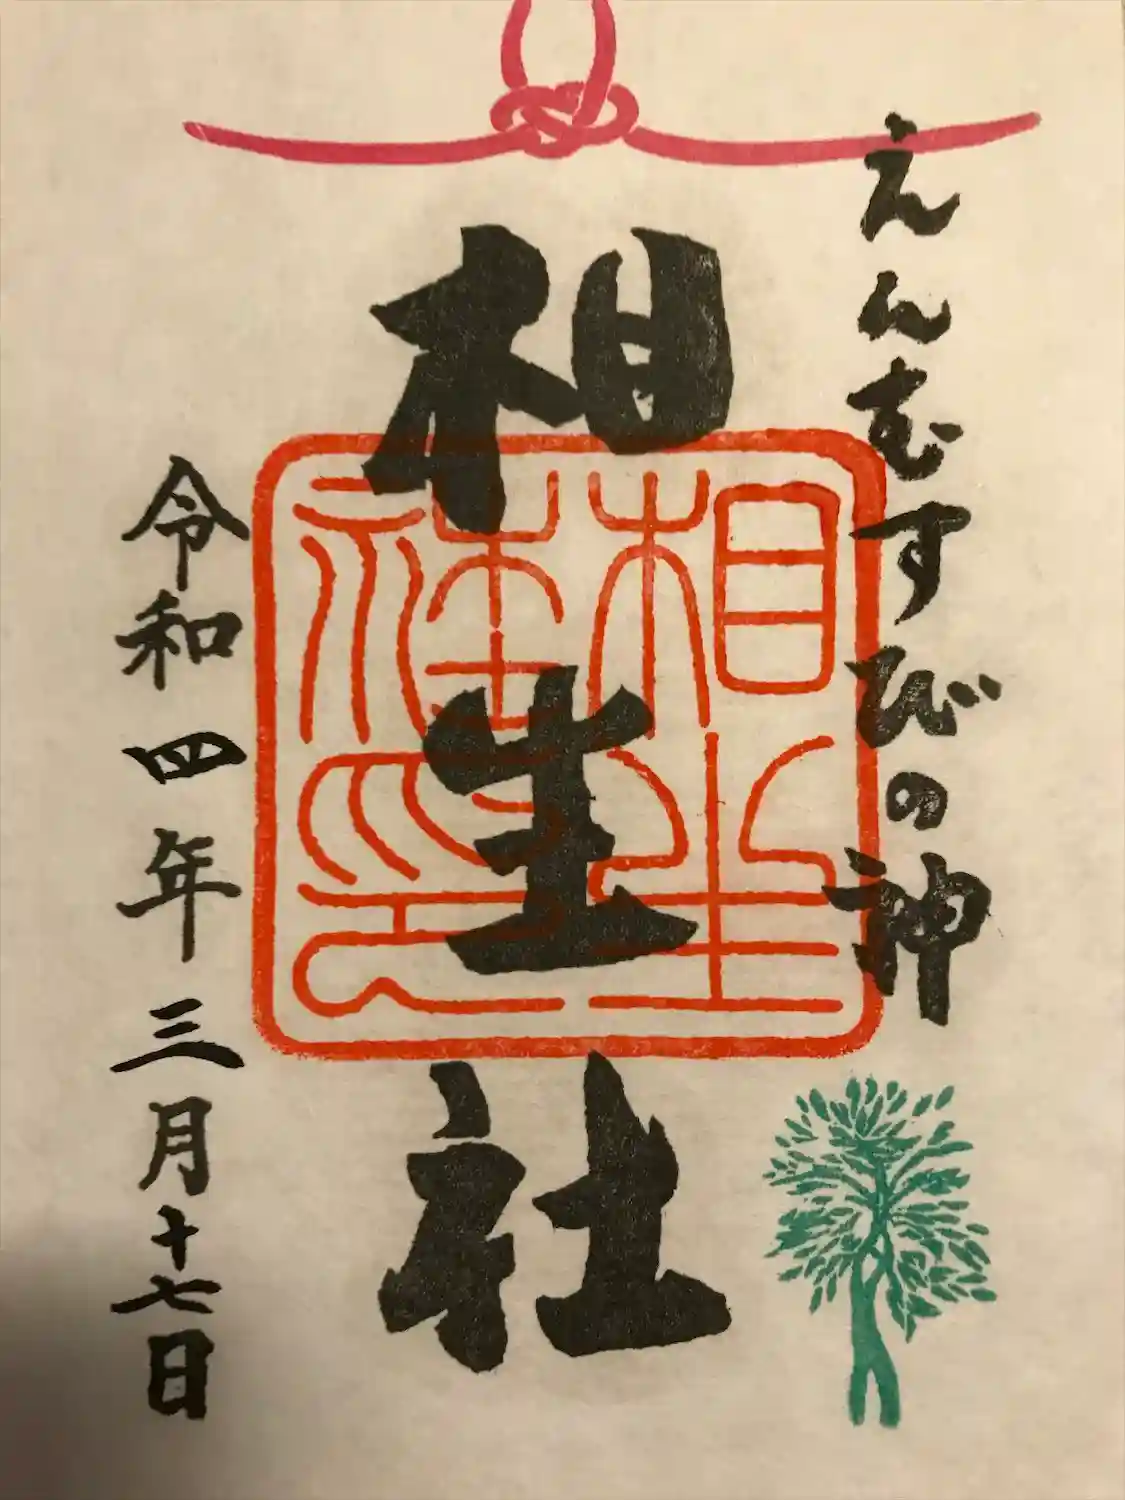 えんむすびの神
相生社
令和四年三月十七日